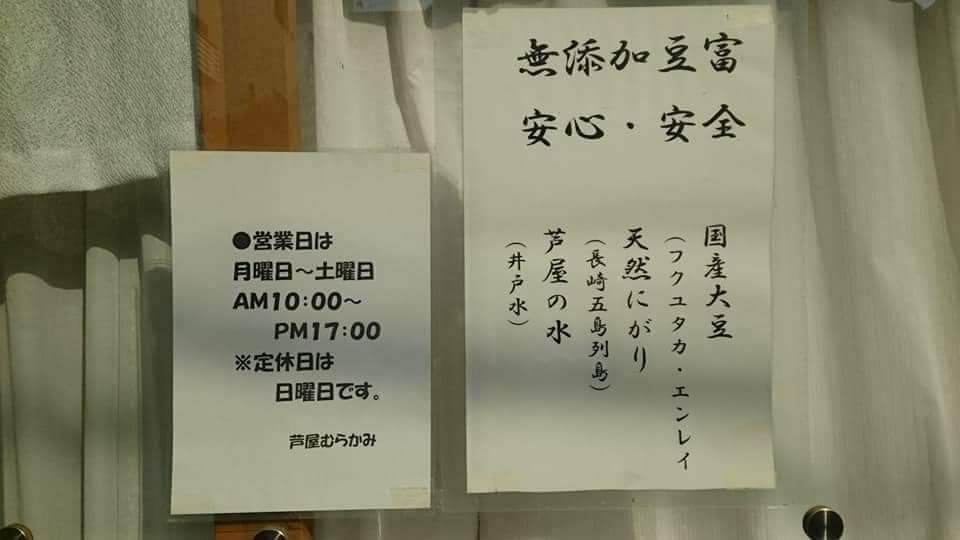 ●営業日は
月曜日～土曜日
AM10:00～
PM17:00
※定休日は
日曜日です。
芦屋むらかみ
無添加豆富
安心・安全
国産大豆
（フクユタカ・エンレイ
天然にがり
（長崎五島列島）
芦屋の水
（井戸水）